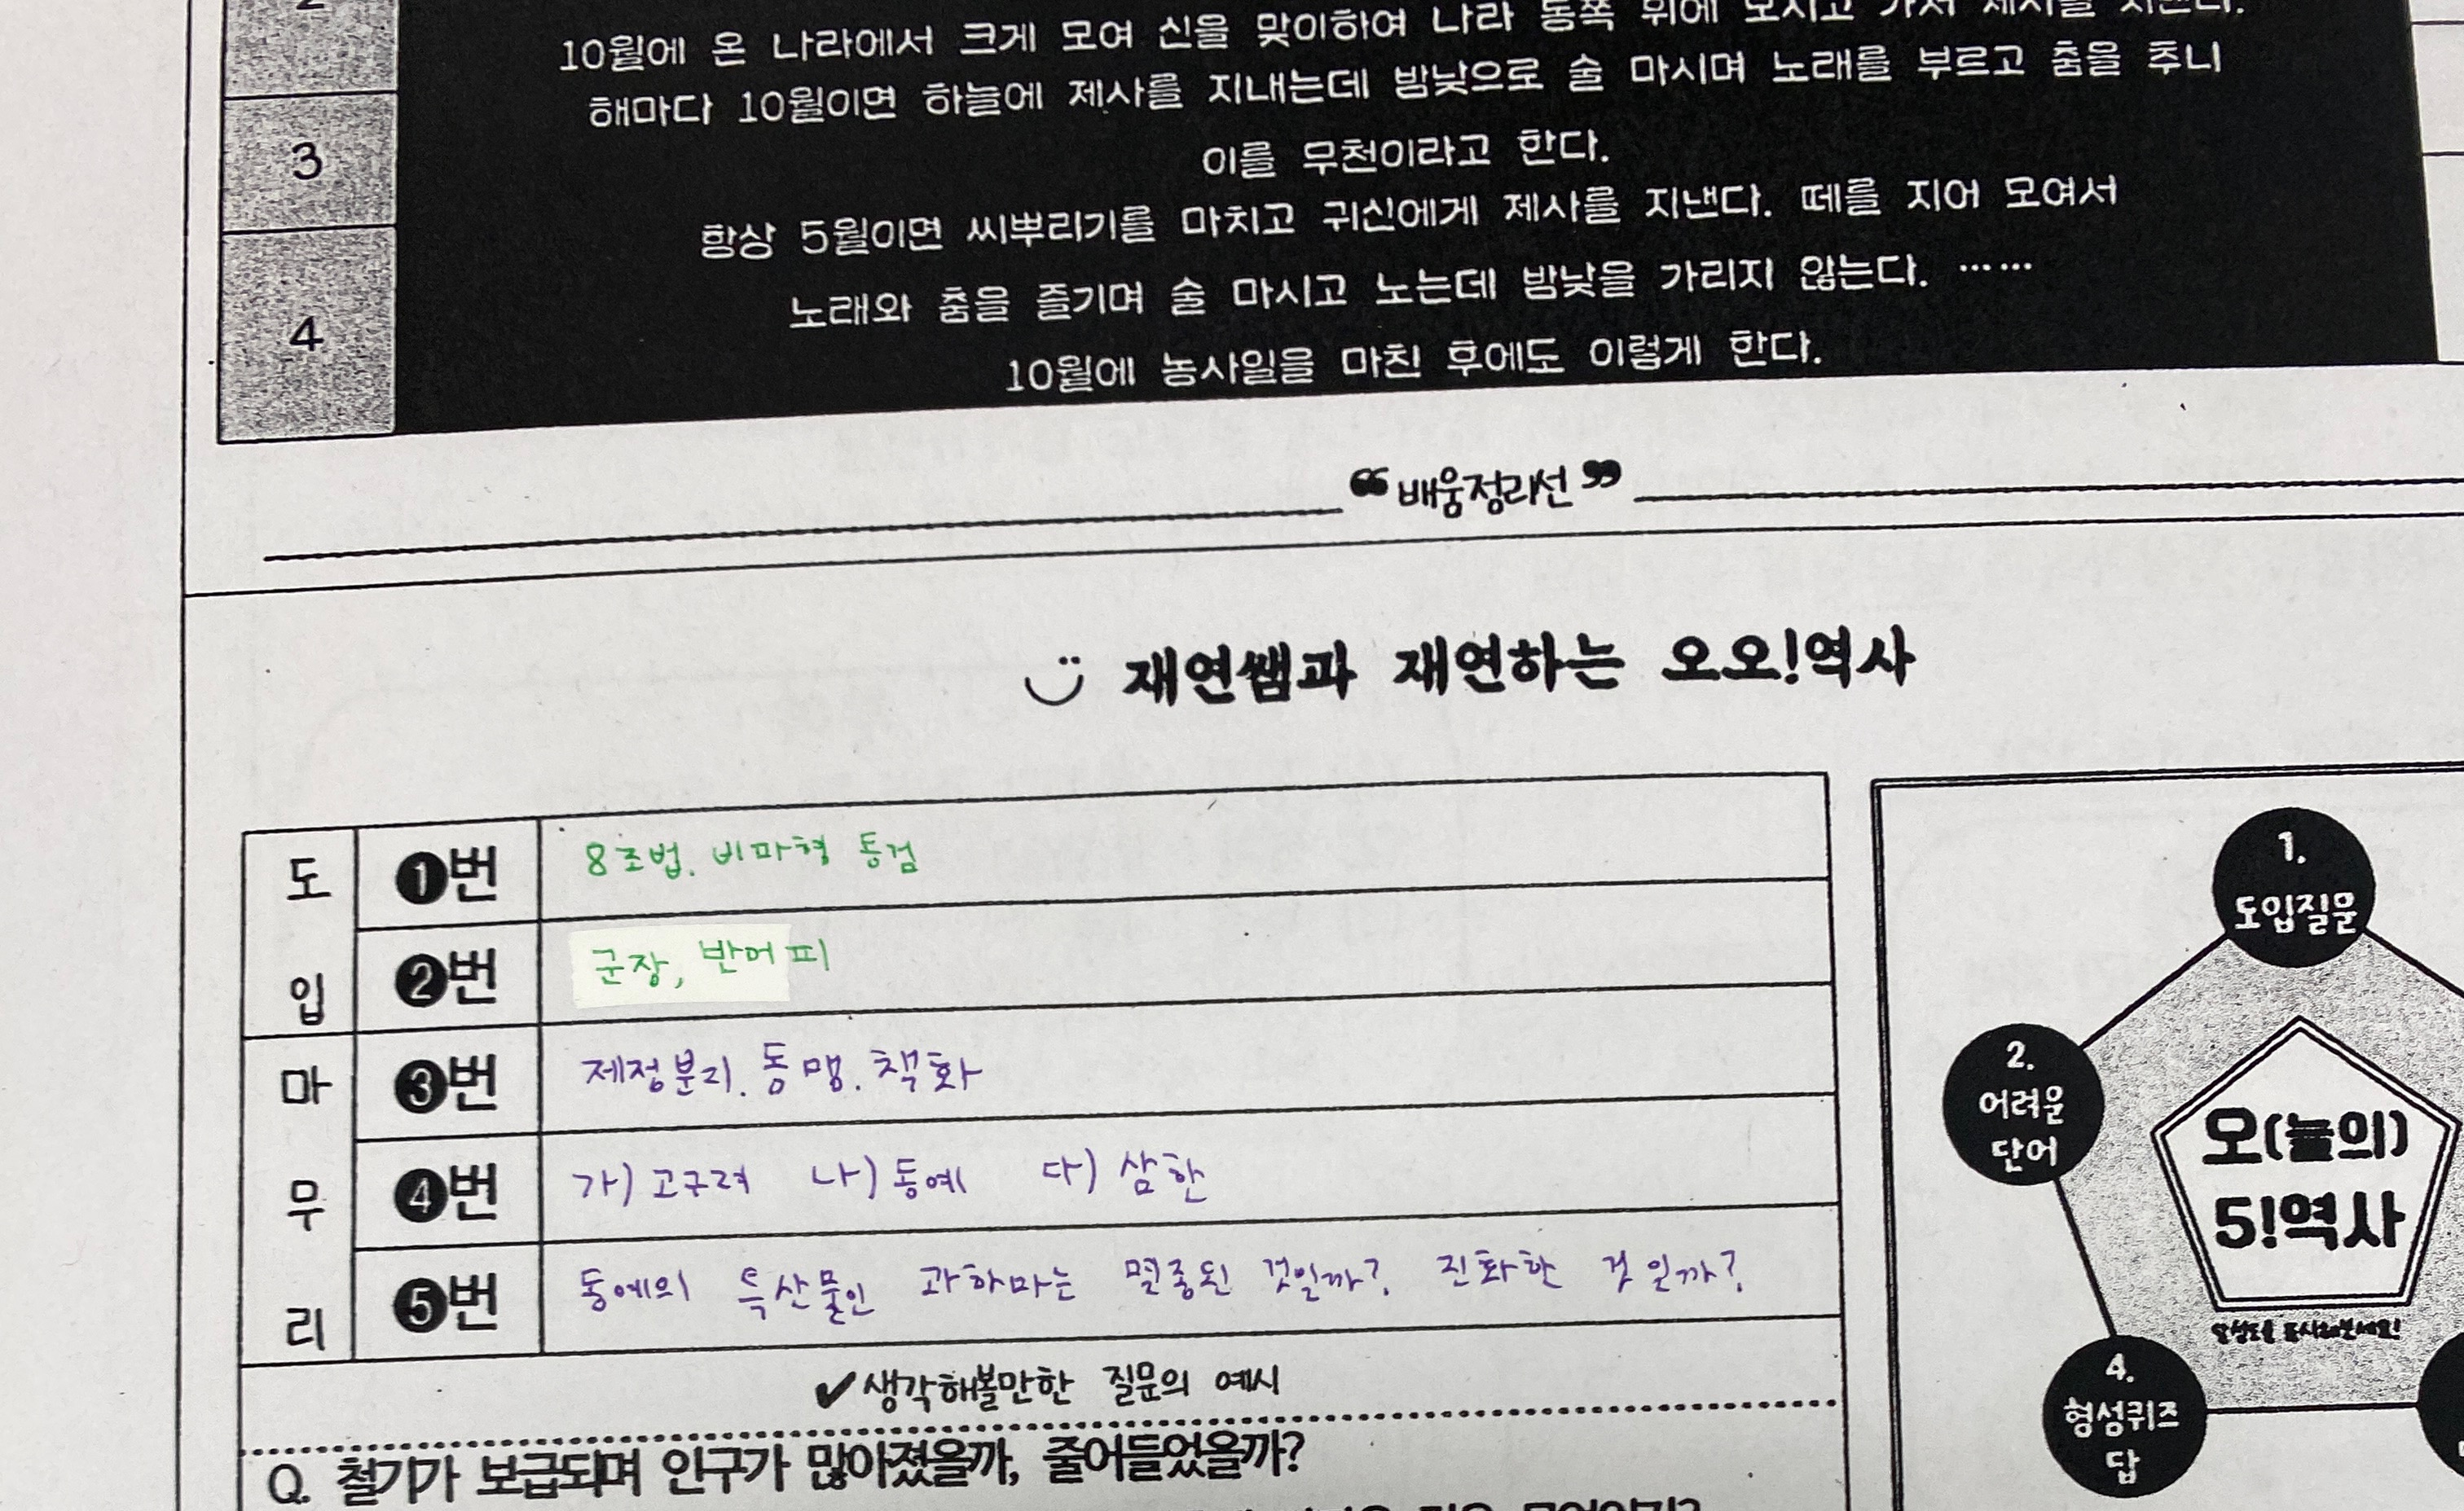 2
10월에 온 나라에서 크게 모여 신을 맞이하여 나라 동쪽 위에 모시고 가서 제사를 지낸다.
해마다 10월이면 하늘에 제사를 지내는데 밤낮으로 술 마시며 노래를 부르고 춤을 추니
3
이를 무천이라고 한다.
항상 5월이면 씨뿌리기를 마치고 귀신에게 제사를 지낸다. 떼를 지어 모여서
노래와 춤을 즐기며 술 마시고 노는데 밤낮을 가리지 않는다. ……
4
10월에 농사일을 마친 후에도 이렇게 한다.
❝배움정리선❞
재연쌤과 재연하는 오오!역사
도입
❶번 8조법. 비파형 동검
❷번 군장, 반어피
마무리
❸번 제정분리. 동맹. 책화
❹번 가) 고구려 나) 동예 다) 삼한
❺번 동예의 특산물인 과하마는 멸종된 것일까? 진화한 것일까?
✔생각해볼만한 질문의 예시
Q. 철기가 보급되며 인구가 많아졌을까, 줄어들었을까?
1.
도입질문
2.
어려운
단어
오(늘의)
5!역사
4.
형성퀴즈
답